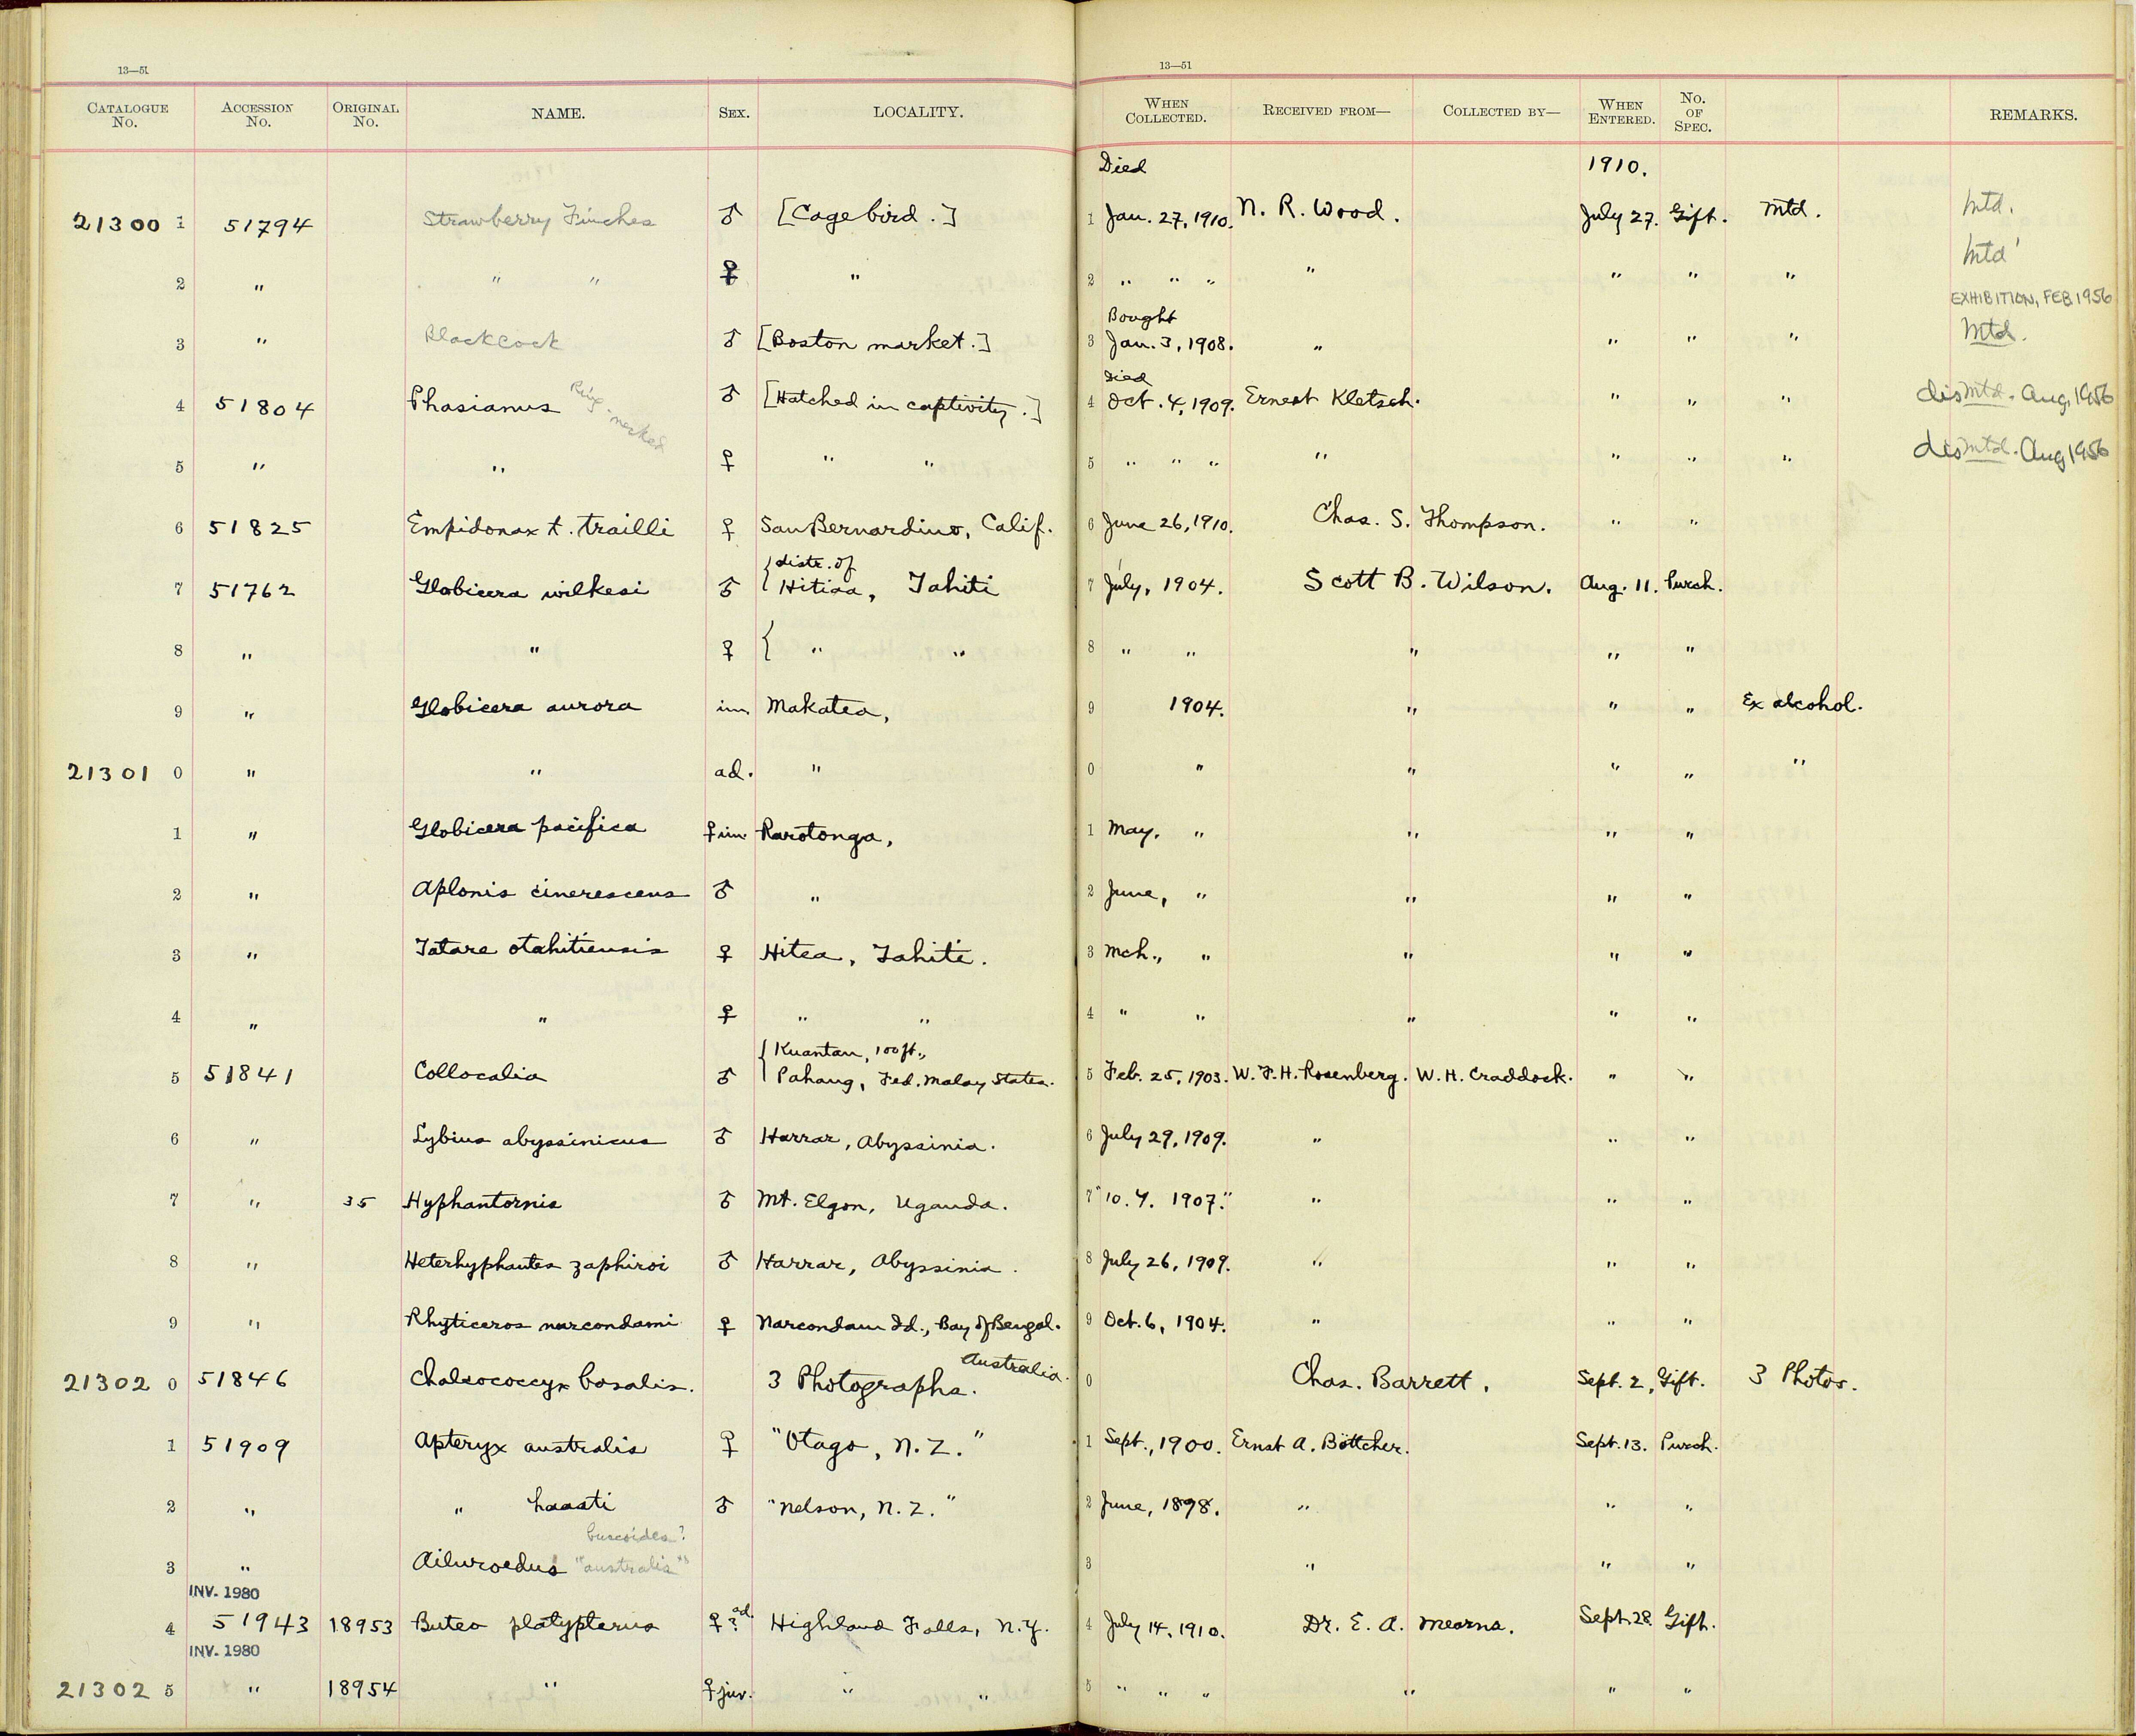 13—51 13—51
CATALOGUE No. ACCESSION No. ORIGINAL No. NAME. SEX. LOCALITY. WHEN COLLECTED. RECEIVED FROM— COLLECTED BY— WHEN ENTERED. No. OF SPEC. REMARKS.
Died 1910.
21300 1 51794 Strawberry Finches ♂ [Cage bird.] 1 Jan. 27, 1910. N. R. Wood. July 27. Gift. Mtd. Mtd.
2 " " " ♀ " 2 " " " " " " " Mtd
EXHIBITION, FEB 1956
Bought
3 " Blackcock ♂ [Boston market.] 3 Jan. 3, 1908. " " " " Mtd.
Died
4 51804 Phasianus Ring-necked ♂ [Hatched in captivity.] 4 Oct. 4, 1909. Ernest Kletsch. " " " dismtd. Aug, 1956
5 " " ♀ " " 5 " " " " " " " dismtd. Aug 1956
6 51825 Empidonax t. trailli ♀ San Bernardino, Calif. 6 June 26, 1910. Chas. S. Thompson. " "
{distr. of
7 51762 Globicera wilkesi ♂ Hitiaa, Tahiti 7 July, 1904. Scott B. Wilson. Aug. 11. Purch.
8 " " ♀ { " " 8 " " " " "
9 " Globicera aurora im. Makatea, 9 1904. " " " Ex alcohol.
21301 0 " " ad. " 0 " " " " "
1 " Globicera pacifica ♀ im. Rarotonga, 1 May, " " " "
2 " Aplonis cinerescens ♂ " 2 June, " " " "
3 " Tatare otahitiensis ♀ Hitea, Tahiti. 3 Mch., " " " "
4 " " ♀ " " 4 " " " " "
{Kuantan, 100 ft.,
5 51841 Collocalia ♂ Pahang, Fed. Malay States. 5 Feb. 25, 1903. W. F. H. Rosenberg. W. H. Craddock. " "
6 " Lybius abyssinicus ♂ Harrar, Abyssinia. 6 July 29, 1909. " " "
7 " 35 Hyphantornis ♂ Mt. Elgon, Uganda. 7 "10. 7. 1907." " " "
8 " Heterhyphantes zaphiroi ♂ Harrar, Abyssinia. 8 July 26, 1909. " " "
9 " Rhyticeros narcondami ♀ Narcondam Id., Bay of Bengal. 9 Oct. 6, 1904. " " "
21302 0 51846 Chalcococcyx basalis. 3 Photographs. Australia. 0 Chas. Barrett. Sept. 2, Gift. 3 Photos.
1 51909 Apteryx australis ♀ "Otago, N. Z." 1 Sept., 1900. Ernst A. Böttcher. Sept. 13. Purch.
2 " " haasti ♂ "Nelson, N. Z." 2 June, 1898. " " "
buccoides?
3 " Ailuroedus "australis" 3 " " "
INV. 1980
4 51943 18953 Buteo platypterus ♀? ad. Highland Falls, N. Y. 4 July 14, 1910. Dr. E. A. Mearns. Sept. 28. Gift.
INV. 1980
21302 5 " 18954 " ♀ juv. " " 5 " " " " " "